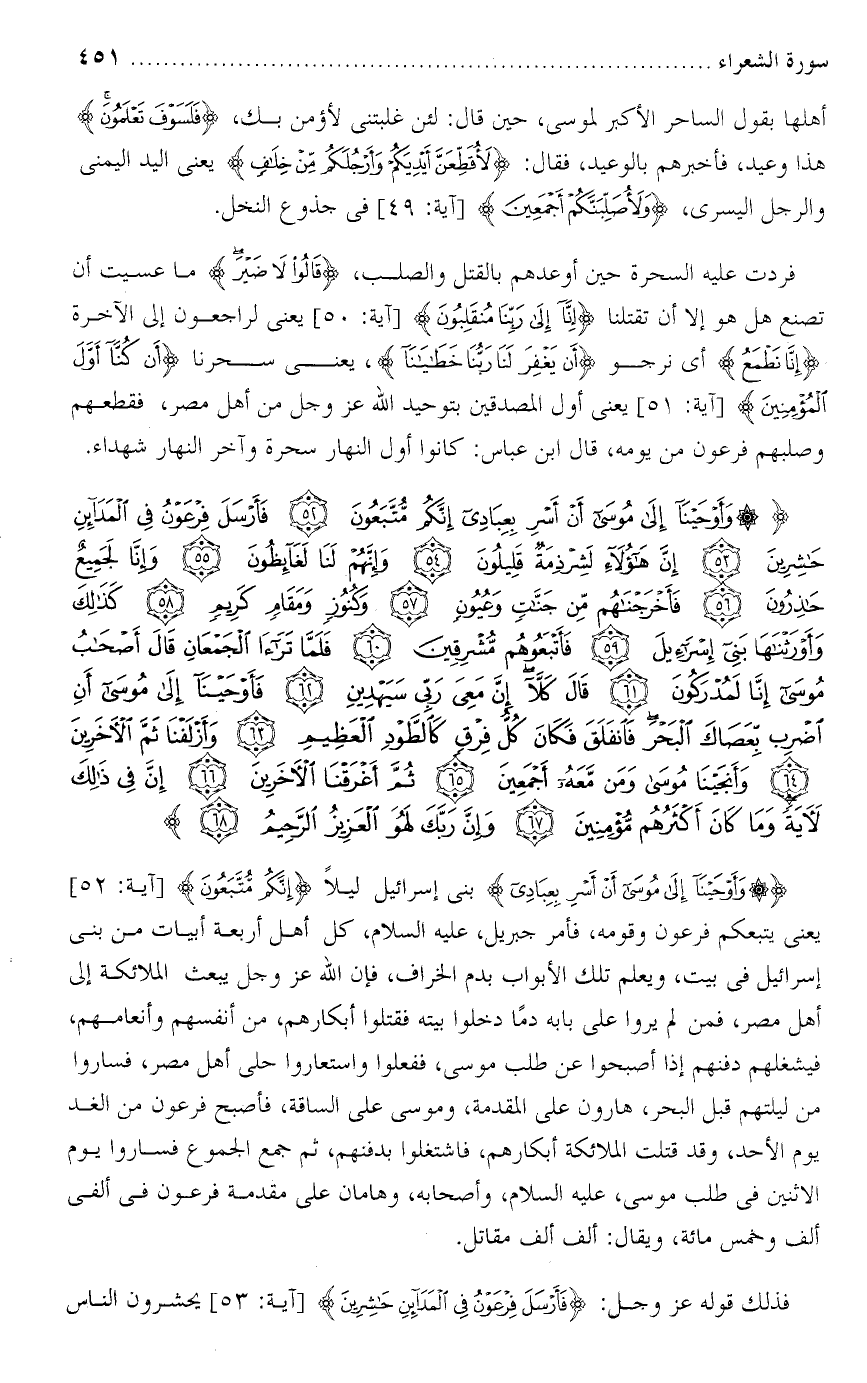 سورة الشعراء ........................................................................ ٤٥١
أهلها بقول الساحر الأكبر لموسى، حين قال: لئن غلبتنى لأؤمن بك، ﴿فَلَسَوْفَ تَعْلَمُونَ﴾
هذا وعيد، فأخبرهم بالوعيد، فقال: ﴿لَأُقَطِّعَنَّ أَيْدِيَكُمْ وَأَرْجُلَكُم مِّنْ خِلَافٍ﴾ يعنى اليد اليمنى
والرجل اليسرى، ﴿وَلَأُصَلِّبَنَّكُمْ أَجْمَعِينَ﴾ [آية: ٤٩] فى جذوع النخل.
فردت عليه السحرة حين أوعدهم بالقتل والصلب، ﴿قَالُوا۟ لَا ضَيْرَ﴾ ما عسيت أن
تصنع هل هو إلا أن تقتلنا ﴿إِنَّآ إِلَىٰ رَبِّنَا مُنقَلِبُونَ﴾ [آية: ٥٠] يعنى لراجعون إلى الآخرة
﴿إِنَّا نَطْمَعُ﴾ أى نرجو ﴿أَن يَغْفِرَ لَنَا رَبُّنَا خَطَايَانَآ﴾، يعنى سحرنا ﴿أَن كُنَّآ أَوَّلَ
ٱلْمُؤْمِنِينَ﴾ [آية: ٥١] يعنى أول المصدقين بتوحيد الله عز وجل من أهل مصر، فقطعهم
وصلبهم فرعون من يومه، قال ابن عباس: كانوا أول النهار سحرة وآخر النهار شهداء.
﴿ ۞ وَأَوْحَيْنَآ إِلَىٰ مُوسَىٰٓ أَنْ أَسْرِ بِعِبَادِىٓ إِنَّكُم مُّتَّبَعُونَ ٥٢ فَأَرْسَلَ فِرْعَوْنُ فِى ٱلْمَدَآئِنِ
حَاشِرِينَ ٥٣ إِنَّ هَٰٓؤُلَآءِ لَشِرْذِمَةٌ قَلِيلُونَ ٥٤ وَإِنَّهُمْ لَنَا لَغَآئِظُونَ ٥٥ وَإِنَّا لَجَمِيعٌ
حَاذِرُونَ ٥٦ فَأَخْرَجْنَاهُم مِّن جَنَّاتٍ وَعُيُونٍ ٥٧ وَكُنُوزٍ وَمَقَامٍ كَرِيمٍ ٥٨ كَذَالِكَ
وَأَوْرَثْنَاهَا بَنِىٓ إِسْرَآءِيلَ ٥٩ فَأَتْبَعُوهُم مُّشْرِقِينَ ٦٠ فَلَمَّا تَرَآءَا ٱلْجَمْعَانِ قَالَ أَصْحَابُ
مُوسَىٰٓ إِنَّا لَمُدْرَكُونَ ٦١ قَالَ كَلَّآ إِنَّ مَعِىَ رَبِّى سَيَهْدِينِ ٦٢ فَأَوْحَيْنَآ إِلَىٰ مُوسَىٰٓ أَنِ
ٱضْرِب بِّعَصَاكَ ٱلْبَحْرَ فَٱنفَلَقَ فَكَانَ كُلُّ فِرْقٍ كَٱلطَّوْدِ ٱلْعَظِيمِ ٦٣ وَأَزْلَفْنَا ثَمَّ ٱلْأَخَرِينَ
٦٤ وَأَنجَيْنَا مُوسَىٰ وَمَن مَّعَهُۥٓ أَجْمَعِينَ ٦٥ ثُمَّ أَغْرَقْنَا ٱلْأَخَرِينَ ٦٦ إِنَّ فِى ذَالِكَ
لَأَيَةً وَمَا كَانَ أَكْثَرُهُم مُّؤْمِنِينَ ٦٧ وَإِنَّ رَبَّكَ لَهُوَ ٱلْعَزِيزُ ٱلرَّحِيمُ ٦٨ ﴾
﴿۞ وَأَوْحَيْنَآ إِلَىٰ مُوسَىٰٓ أَنْ أَسْرِ بِعِبَادِىٓ﴾ بنى إسرائيل ليلاً ﴿إِنَّكُم مُّتَّبَعُونَ﴾ [آية: ٥٢]
يعنى يتبعكم فرعون وقومه، فأمر جبريل، عليه السلام، كل أهل أربعة أبيات من بنى
إسرائيل فى بيت، ويعلم تلك الأبواب بدم الخراف، فإن الله عز وجل يبعث الملائكة إلى
أهل مصر، فمن لم يروا على بابه دمًا دخلوا بيته فقتلوا أبكارهم، من أنفسهم وأنعامهم،
فيشغلهم دفنهم إذا أصبحوا عن طلب موسى، ففعلوا واستعاروا حلى أهل مصر، فساروا
من ليلتهم قبل البحر، هارون على المقدمة، وموسى على الساقة، فأصبح فرعون من الغد
يوم الأحد، وقد قتلت الملائكة أبكارهم، فاشتغلوا بدفنهم، ثم جمع الجموع فساروا يوم
الاثنين فى طلب موسى، عليه السلام، وأصحابه، وهامان على مقدمة فرعون فى ألفى
ألف وخمس مائة، ويقال: ألف ألف مقاتل.
فذلك قوله عز وجل: ﴿فَأَرْسَلَ فِرْعَوْنُ فِى ٱلْمَدَآئِنِ حَاشِرِينَ﴾ [آية: ٥٣] يحشرون الناس